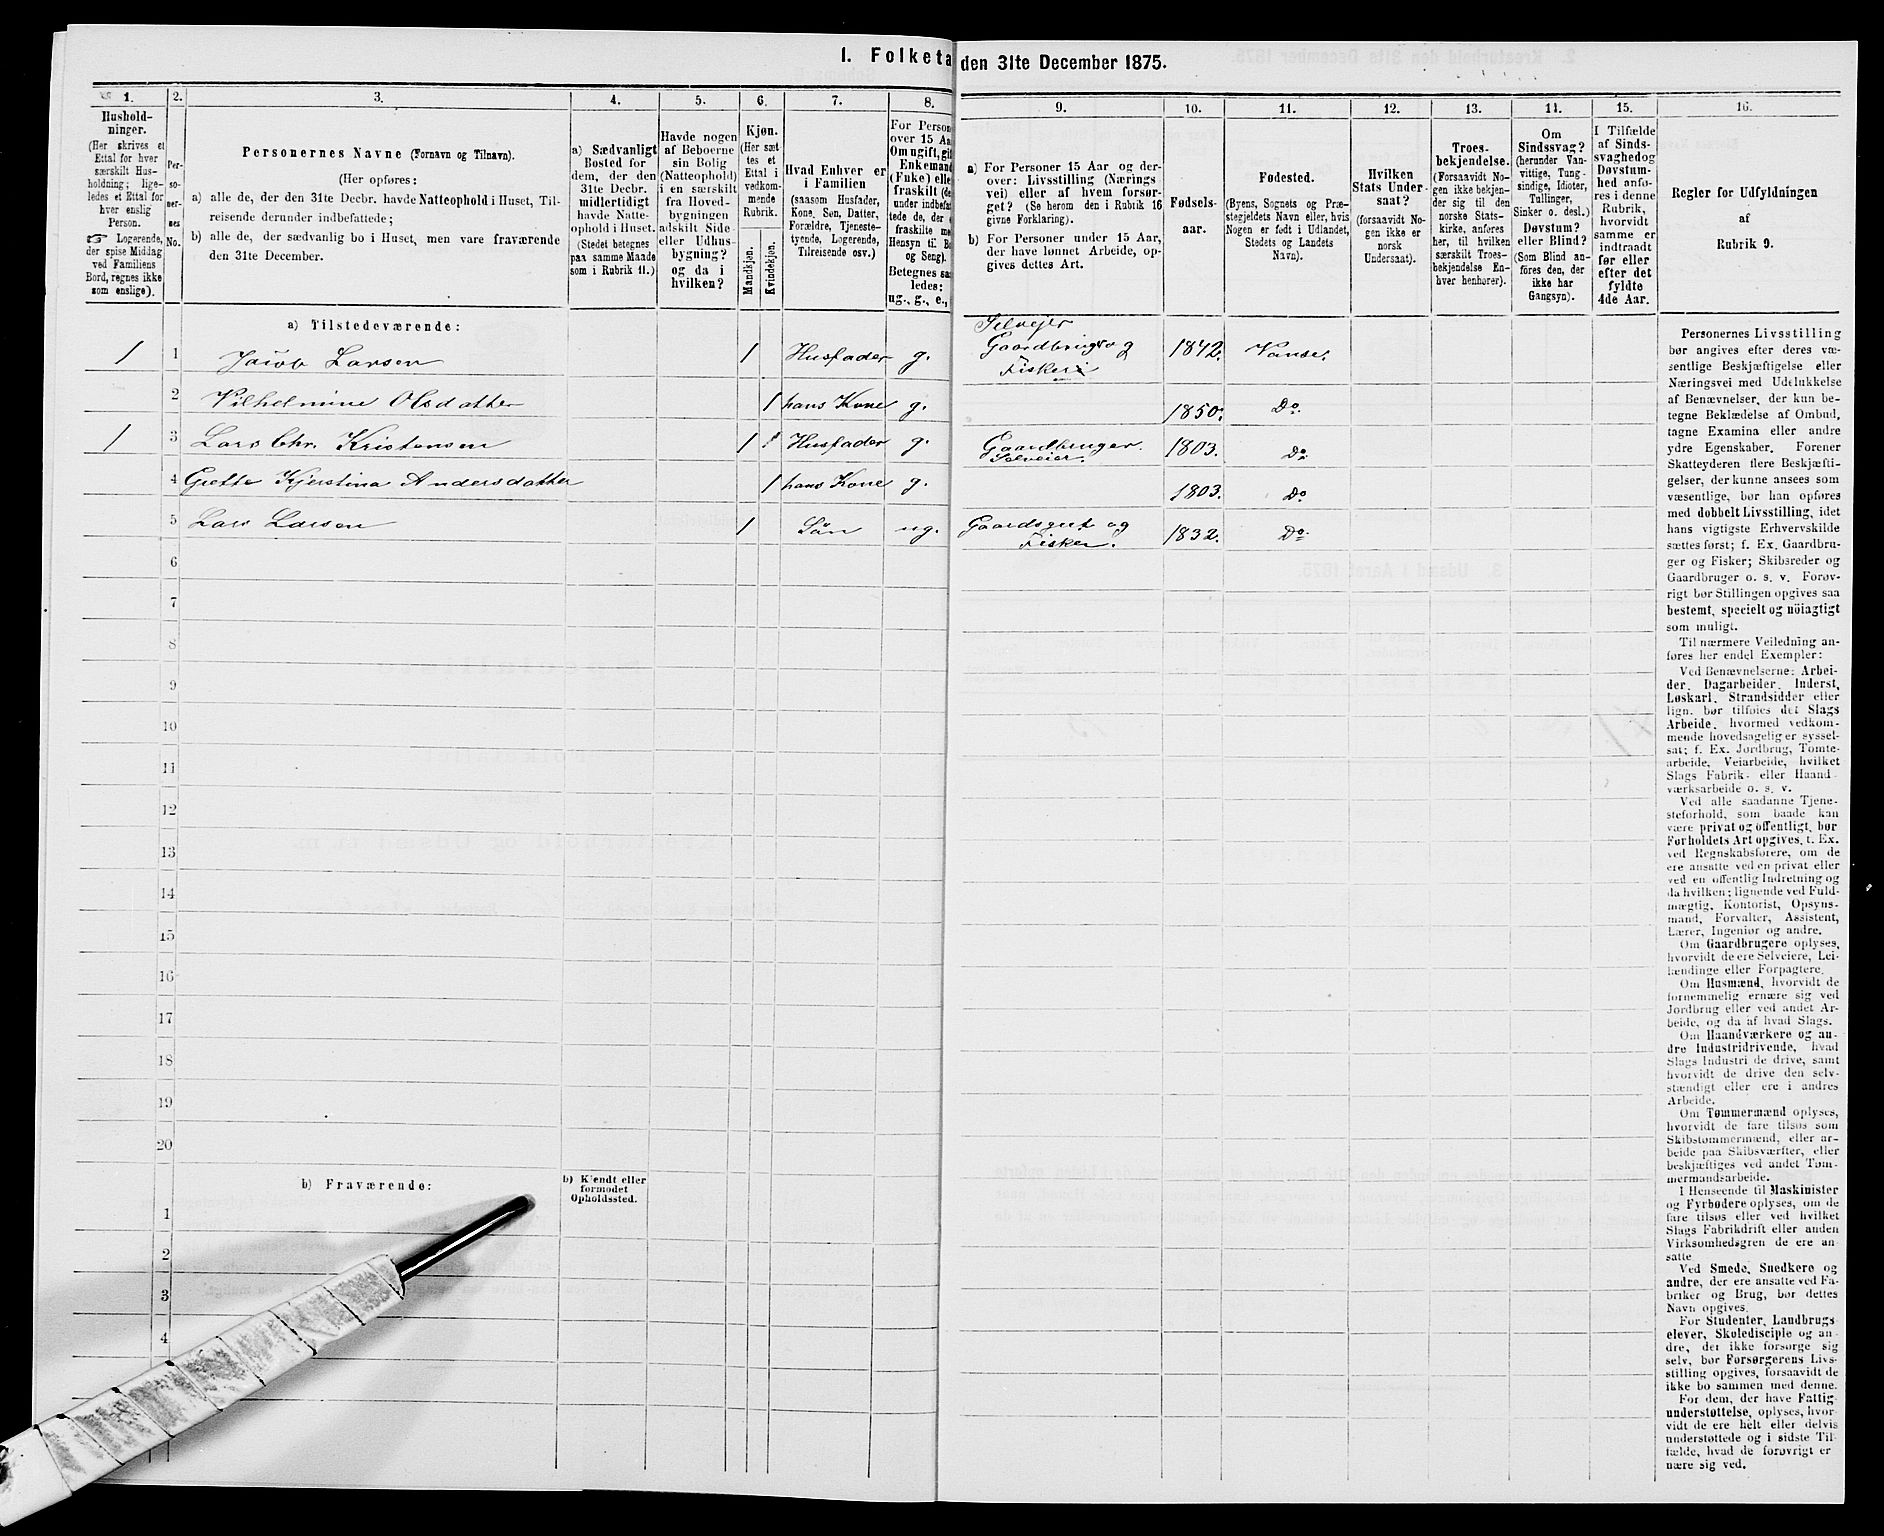 I. Folketa den 31te December 1875.
1.
Hushold-
ninger.
(Her skrives et
Ettal for hver
særskilt Hus-
holdning; lige-
ledes et Ettal for
hver enslig
Person.
☞ Logerende,
der spise Middag
ved Familiens
Bord, regnes ikke
som enslige).
2.
Per-
so-
ner-
nes
No.
3.
Personernes Navne (Fornavn og Tilnavn).
(Her opføres:
a) alle de, der den 31te Decbr. havde Natteophold i Huset, Til-
reisende derunder indbefattede;
b) alle de, der sædvanlig bo i Huset, men vare fraværende
den 31te December.
4.
a) Sædvanligt
Bosted for
dem, der den
31te Decbr.
midlertidigt
havde Natte-
ophold i Huset.
(Stedet betegnes
paa samme Maade
som i Rubrik 11.)
5.
Havde nogen
af Beboerne
sin Bolig
(Natteophold)
i en særskilt
fra Hoved-
bygningen
adskilt Side-
eller Udhus-
bygning?
og da i
hvilken?
6.
Kjøn.
(Her sæt
tes et
Ettal i
vedkom-
mende
Rubrik.
Mandkjøn.
Kvindekjøn.
7.
Hvad Enhver er
i Familien
(saasom Husfader,
Kone, Søn, Datter,
Forældre, Tjeneste-
tyende, Logerende,
Tilreisende osv.)
8.
For Person
over 15 Aa
Om ugift, gif
Enkemand
(Fuke) elle
fraskilt (de
under indbefat
tede de, der
fraskilte me
Hensyn til Bo
og Seng).
Betegnes saa
ledes:
ug., g., e.,
9.
a) For Personer 15 Aar og der-
over: Livsstilling (Nærings-
vei) eller af hvem forsør-
get? (Se herom den i Rubrik 16
givne Forklaring).
b) For Personer under 15 Aar,
der have lønnet Arbeide, op-
gives dettes Art.
10.
Fødsels-
aar.
11.
Fødested.
(Byens, Sognets og Præ-
stegjeldets Navn eller, hvis
Nogen er født i Udlandet,
Stedets og Landets
Navn).
12.
Hvilken
Stats Under-
saat?
(forsaavidt No-
gen ikke er
norsk
Undersaat).
13.
Troes-
bekjendelse.
(Forsaavidt No-
gen ikke bekjen-
der sig til den
norske Stats-
kirke, anføres
her, til hvilken
særskilt Troes-
bekjendelse En-
hver henhører).
14.
Om
Sindssvag?
(herunder Van-
vittige, Tung-
sindige, Idioter,
Tullinger,
Sinker o. desl.)
Døvstum?
eller Blind?
(Som Blind an-
føres den, der
ikke har
Gangsyn).
15.
I Tilfælde
af Sinds-
svaghed og
Døvstum-
hed anfø-
res i denne
Rubrik,
hvorvidt
samme er
indtraadt
før eller
efter det
fyldte
4de Aar.
16.
Regler for Udfyldningen
af
Rubrik 9.
a) Tilstedeværende:
1 1 Jacob Larsen 1 Husfader g. Selvejer Gaardbrug og Fisker 1842. Vanse.
2 Vilhelmine Olsdatter 1 hans Kone g. 1850. Do.
1 3 Lars Chr. Kristensen 1 1 Husfader g. Gaardbruger. Selveier. 1803. Do
4 Grethe Kjerstina Andersdatter 1 hans Kone g. 1803. Do
5 Lars Larsen 1 Søn ug. Gaardsgut og Fisker. 1832. Do
6
7
8
9
10
11
12
13
14
15
16
17
18
19
20
b) Fraværende:
b) Kjendt eller
formodet
Opholdssted.
1
2
3
4
Personernes Livsstilling
bør angives efter deres væ-
sentlige Beskjæftigelse eller
Næringsvei med Udelukkelse
af Benævnelser, der kun be-
tegne Beklædelse af Ombud,
tagne Examina eller andre
ydre Egenskaber. Forener
Skatteyderen flere Beskjæfti-
gelser, der kunne ansees som
væsentlige, bør han opføres
med dobbelt Livsstilling, idet
hans vigtigste Erhvervskilde
sættes først; f. Ex. Gaardbru-
ger og Fisker; Skibsreder og
Gaardbruger o. s. v. Forøv-
rigt bør Stillingen opgives saa
bestemt, specielt og nöiagtigt
som muligt.
Til nærmere Veiledning an-
føres her endel Exempler:
Ved Benævnelserne: Arbei-
der, Dagarbeider, Inderst,
Løskarl, Strandsidder eller
lign. bør tilføies det Slags
Arbeide, hvormed vedkom-
mende hovedsagelig er syssel-
sat; f. Ex. Jordbrug, Tomte-
arbeide, Veiarbeide, hvilket
Slags Fabrik- eller Haand
værksarbeide o. s. v.
Ved alle saadanne Tjene-
steforhold, som baade kan
være privat og offentligt, bør
Forholdets Art opgives, f. Ex.
ved Regnskabsførere, om de
ere ansatte ved en privat eller
ved en offentlig Indretning og
da hvilken; lignende ved Fuld-
mægtig, Kontorist, Opsyns-
mand, Forvalter, Assistent,
Lærer, Ingeniør og andre.
Om Gaardbrugere oplyses,
hvorvidt de ere Selveiere, Lei-
lændinge eller Forpagtere.
Om Husmænd, hvorvidt de
fornemmelig ernære sig ved
Jordbrug eller ved andet Ar-
beide, og da af hvad Slags.
Om Haandværkere og an-
dre Industridrivende, hvad
Slags Industri de drive, samt
hvorvidt de drive den selv-
stændigt eller ere i andres
Arbeide.
Om Tømmermænd oplyses,
hvorvidt de fare tilsøs som
Skibstømmermænd, eller ar-
beide paa Skibsværfter, eller
beskjæftiges ved andet Tøm-
mermandsarbeide.
I Henseende til Maskinister
og Fyrbødere oplyses, om de
fare tilsøs eller ved hvilket
Slags Fabrikdrift eller anden
Virksomhedsgren de ere an-
satte
Ved Smede, Snedkere og
andre, der ere ansatte ved Fa-
briker og Brug, bør dettes
Navn opgives.
For Studenter, Landbrugs
elever, Skoledisciple og an-
dre, der ikke forsørge sig
selv, bør Forsørgerens Livs-
stilling opgives, forsaavidt de
ikke bo sammen med denne.
For dem, der have Fattig-
understøttelse, oplyses, hvor-
vidt de ere helt eller delvis
understøttede og i sidste Til-
fælde, hvad de forøvrigt er
nære sig ved.